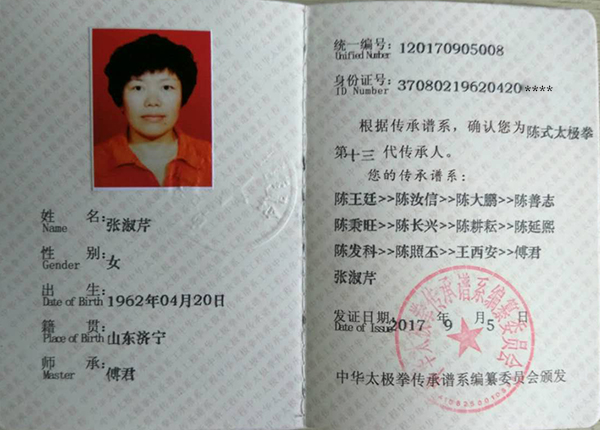 姓 名: 张淑芹
Name
性 别: 女
Gender
出 生:
Date of Birth 1962年04月20日
籍 贯:
Place of Birth 山东济宁
师 承:
Master 傅君
统一编号: 120170905008
Unified Number
身份证号: 37080219620420****
ID Number
根据传承谱系,确认您为陈式太极拳
第十三 代传承人。
您的传承谱系:
陈王廷>>陈汝信>>陈大鹏>>陈善志
陈秉旺>>陈长兴>>陈耕耘>>陈延熙
陈发科>>陈照丕>>王西安>>傅君
张淑芹
发证日期: 2017 年 9 月 5 日
Date of Issue
中华太极拳传承谱系编纂委员会颁发
中华太极拳传承谱系编纂委员会